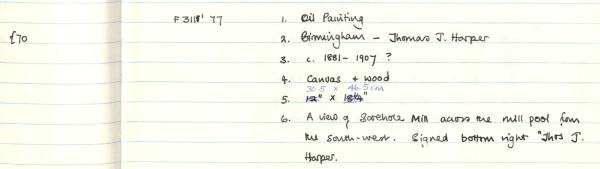 F 3118' 77
1. Oil Painting
£70
2. Birmingham - Thomas J. Harper
3. c. 1881 - 1907 ?
4. Canvas + wood
30.5 x 46.5 cm
5. 12" x 18¼"
6. A view of Sarehole Mill across the mill pool from
the south-west. Signed bottom right "Thos J.
Harper.